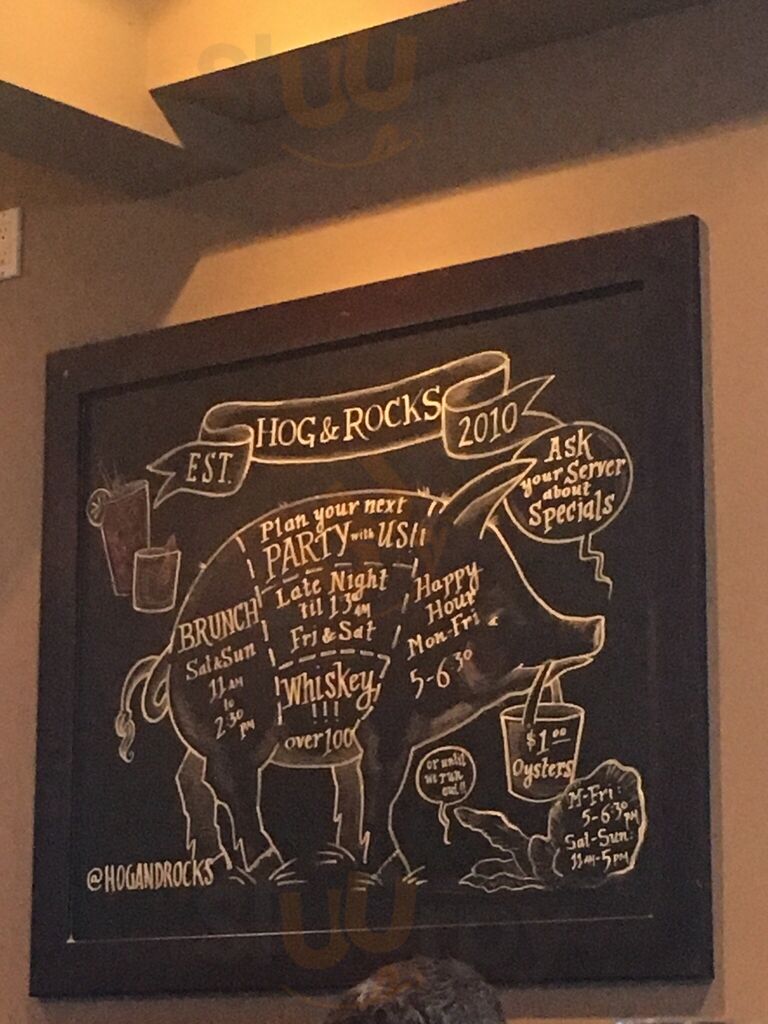 HOG & ROCKS
EST.
2010
Ask
your Server
about
Specials
Plan your next
PARTY with US!!
Late Night
til 1
Fri & Sat
Whiskey
!!!
over 100
BRUNCH
Sat & Sun
11 AM
to
2:30 PM
Happy
Hour
Mon-Fri
5-6:30
$1.00
Oysters
or until
we run
out!!
M-Fri:
5-6:30 PM
Sat-Sun:
11 AM-5 PM
@HOGANDROCKS